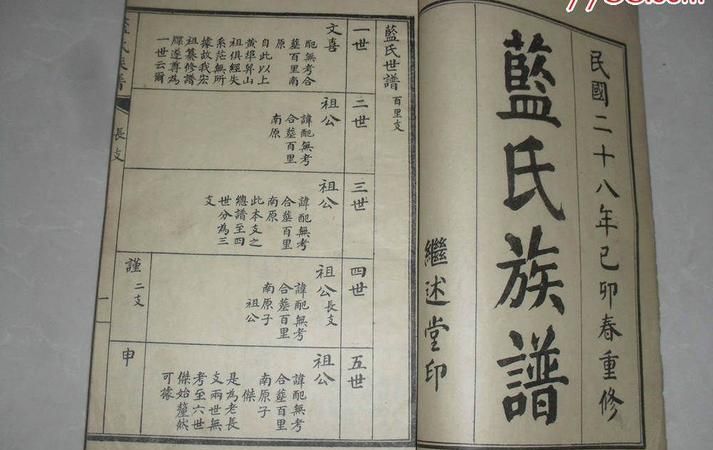 民國二十八年己卯春重修
藍氏族譜
繼述堂印
藍氏世譜 百里支
一世
文喜
配無考合
墓百里南
原
自此以上
黄埠舁山
祖俱經失
系茫無所
據故我宏
祖纂修譜
牒遂尊為
一世云爾
二世
祖公
諱配無考
合墓百里
南原
三世
祖公
諱配無考
合墓百里
南原
此本支之
總譜至四
世分為三
支
四世
祖公長支
諱配無考
合墓百里
南原子
祖公
謹二支
五世
祖公
諱配無考
合墓百里
南原子
傑
是為老長
支兩世無
考至六世
傑始釐然
可據
申
藍氏族譜
長支
一